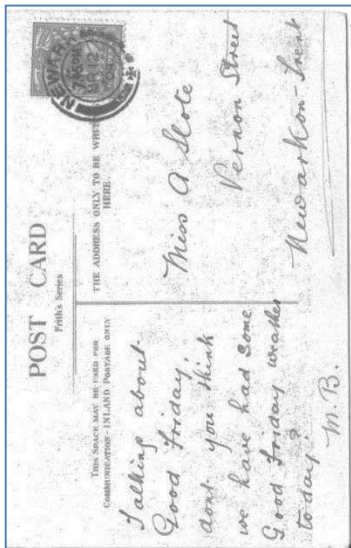 POST CARD
Frith's Series
THIS SPACE MAY BE USED FOR
COMMUNICATION - INLAND POSTAGE ONLY
THE ADDRESS ONLY TO BE WRITTEN
HERE.
NEWARK
MR 12
Talking about
Good Friday,
dont you think
we have had some
Good Friday weather
today?
M.B.
Miss A Slote
Vernon Street
Newark on-Trent